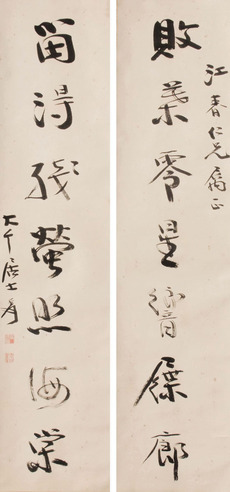 江春仁兄屬正
敗葉零星響屧廊
留得殘螢照海棠
大千居士爰